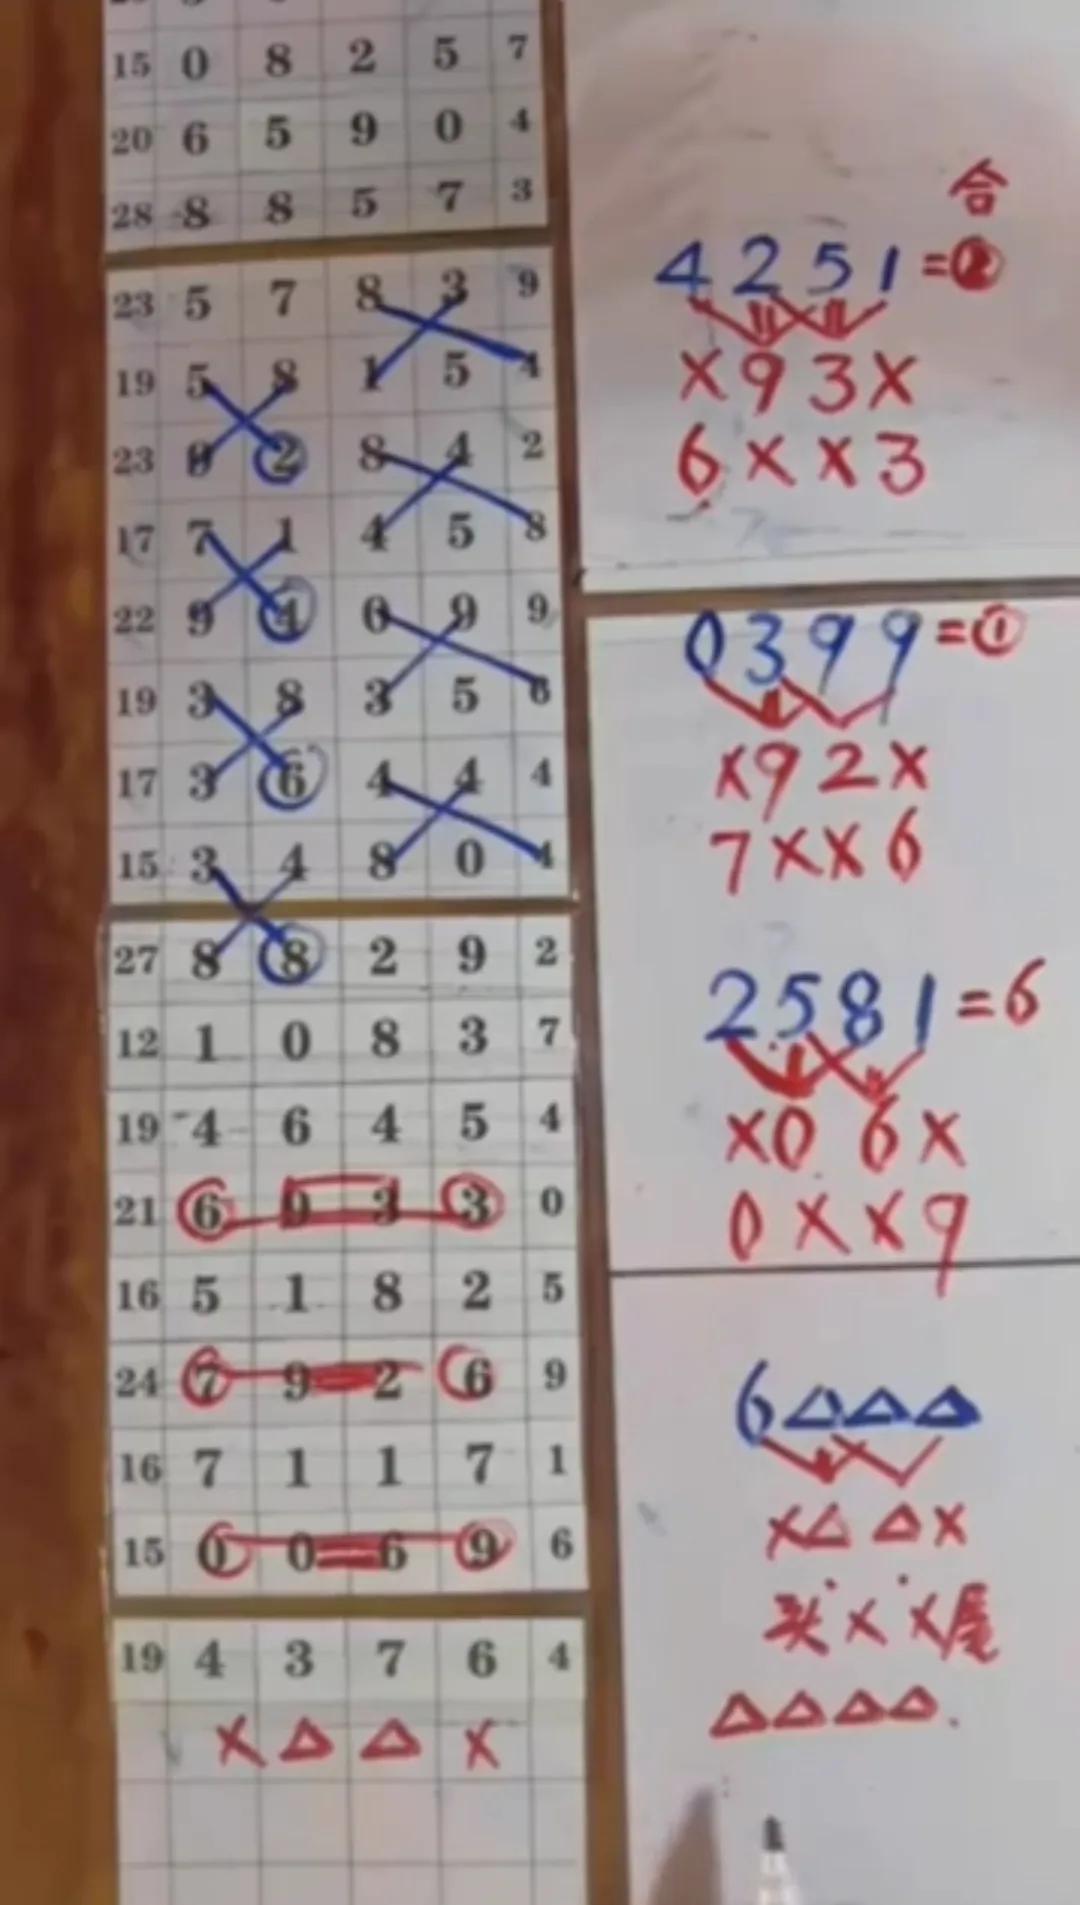 15 0 8 2 5 7
20 6 5 9 0 4
28 8 8 5 7 3
23 5 7 8 3 9
19 5 8 1 5 4
23 9 2 8 4 2
17 7 1 4 5 8
22 9 4 6 9 9
19 3 8 3 5 6
17 3 6 4 4 4
15 3 4 8 0 4
27 8 8 2 9 2
12 1 0 8 3 7
19 4 6 4 5 4
21 6 9 3 3 0
16 5 1 8 2 5
24 7 9 2 6 9
16 7 1 1 7 1
15 0 0 6 9 6
19 4 3 7 6 4
X △ △ X
合
4251=②
X93X
6XX3
0399=①
X92X
7XX6
2581=6
X06X
0XX9
6△△△
X△△X
头XX尾
△△△△.